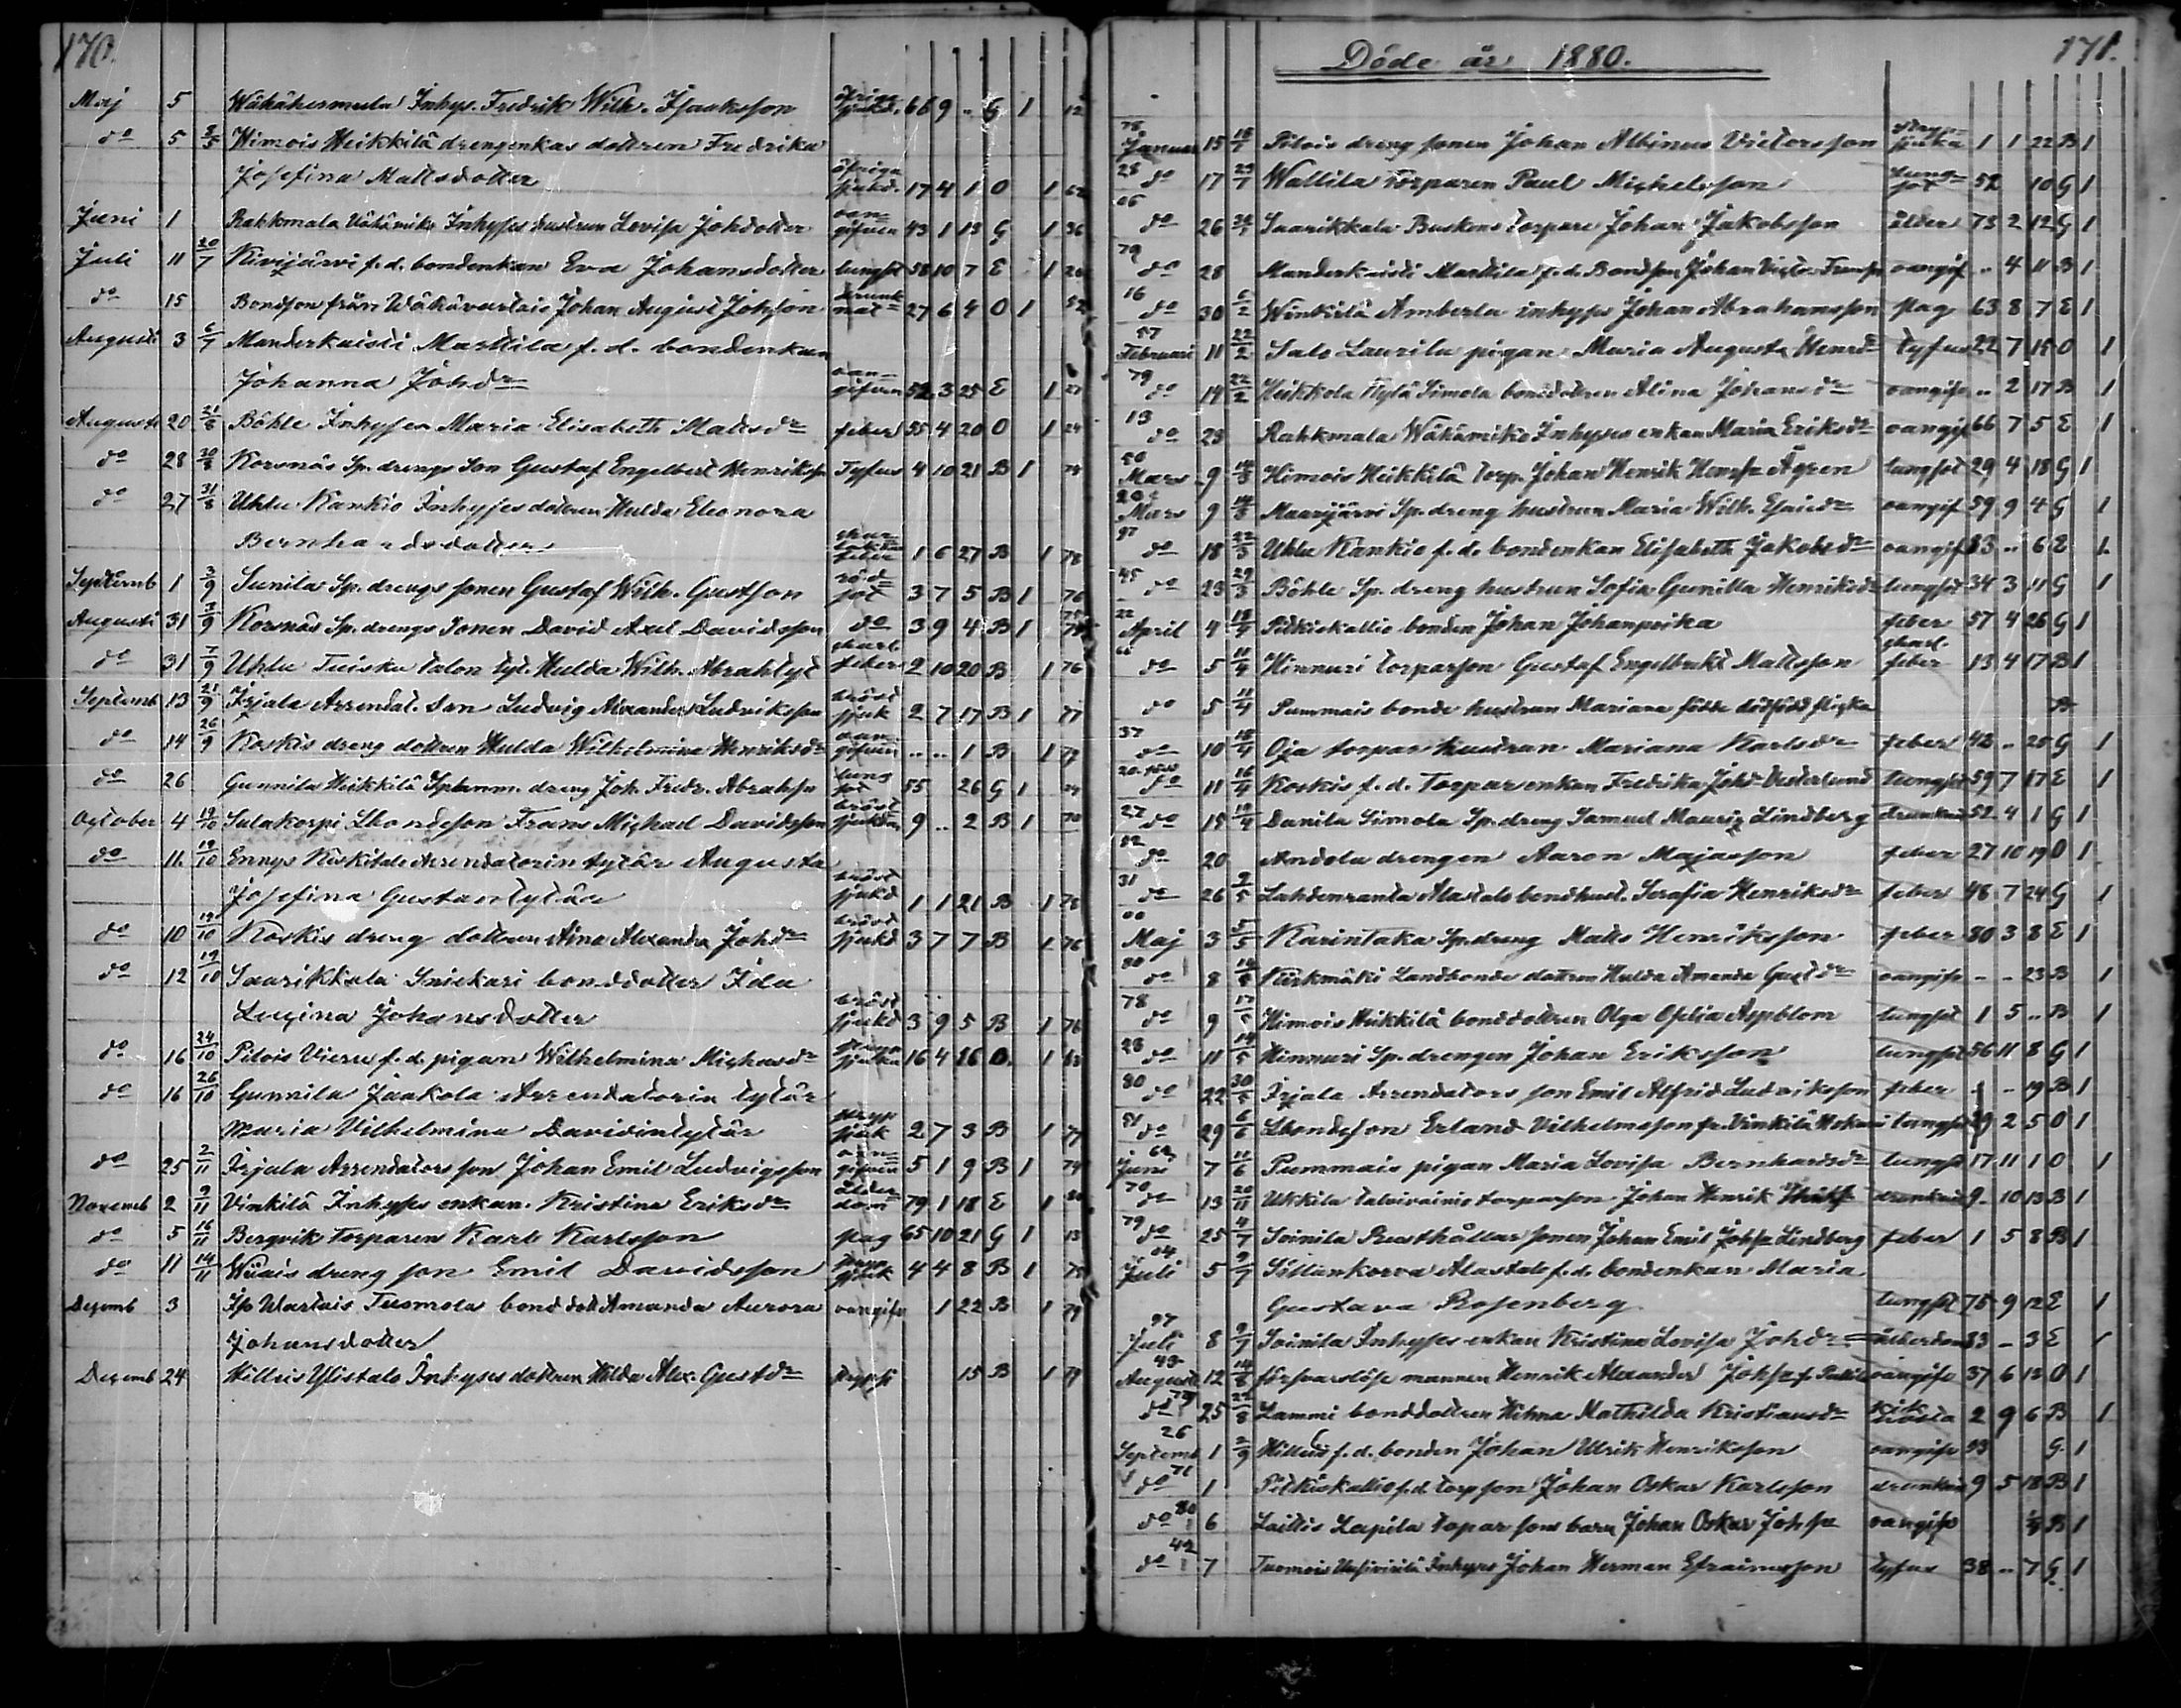 170.
Maj 5 Wähähermula Inhys. Fredrik Wilh. Isaaksson 66 9 .. G 1 12
do 5 Himois Heikkilä drengenkas dottren Fredrika
Josefina Mattsdotter öfriga sjukd. 17 4 1 O 1 62
Juni 1 Rahkmala Vähämiko Inhyses hustrun Lovisa Johdotter oangifven 43 1 13 G 1 36
Juli 11 20/7 Kivijärvi f.d. bondenkan Eva Johansdotter lungsot 58 10 7 E 1
do 15 Bondson från Wähävartois Johan August Johsson drunknat 27 6 4 O 1 52
Augusti 3 Manderkaisti Marttila f. d. bondenkan
Johanna Johdr oangifven 52 3 25 E 1 27
Augusti 20 21/8 Böhle Inhyses Maria Elisabeth Matsdr feber 55 4 20 O 1 24
do 28 30/8 Korsnäs Sp. drengs Son Gustaf Engelbert Henriksson Tyfus 4 10 21 B 1
do 27 31/8 Uhlu Kankio Inhyses dottren Hulda Eleonora
Bernhardsdotter feber 1 6 27 B 1 78
Septemb 1 3/9 Sunila Sp. drengs sonen Gustaf Wilh. Gustsson rödsot 3 7 5 B 1 76
Augusti 31 3/9 Korsnäs Sp. drengs Sonen David Axel Davidsson do 3 9 4 B 1
do 31 7/9 Uhlu Tuisku talon tyt. Hulda Wilh. Abrahtyt skarl. feber 2 10 20 B 1 76
Septemb 13 21/9 Irjala Arrendat. Son Ludvig Alexander Ludviksson bröst sjuk 2 7 17 B 1 77
do 14 26/9 Koskis dreng dottren Hulda Wilhelmina Henriksdr oangifven .. .. 1 B 1 79
do 26 Gunnila Heikkilä Sptemm. dreng Joh. Fredr. Abrahsn lung sot 55 26 G 1
October 4 19/10 Salakorpi Sbondeson Frans Michael Davidsson bröst sjukdom 9 .. 2 B 1 70
do 11 19/10 Ennys Kuskitalo Arrendatorin tytär Augusta
Josefina Gustavintytär bröst sjukd 1 1 21 B 1 78
do 10 19/10 Koskis dreng dottren Aina Alexandra Johdr bröst sjukd 3 7 7 B 1 76
do 12 19/10 Saarikkala Sniekari bonddotter Ida
Lucina Johansdotter bröst sjukd 3 9 5 B 1 76
do 16 24/10 Pilois Vieru f. d. pigan Wilhelmina Michaesdr 16 4 26 O. 1 63
do 16 26/10 Gunnila Jaakola Arrendatorin tytär
Maria Vilhelmina Davidintytär stryp sjuk 2 7 3 B 1 77
do 25 2/11 Irjala Arrendators son Johan Emil Ludvigsson oangifven 5 1 9 B 1 74
Novemb 2 9/11 Vinkilä Inhyses enkan Kristina Eriksdr ålderdom 79 1 18 E 1
do 5 16/11 Bergvik torparen Karl Karlsson slag 65 10 21 G 1 15
do 11 14/11 dreng son Emil Davidsson stryp sjuk 4 4 8 B 1
Decemb 3 Iso Wartois Tuomola bond dott Amanda Aurora oangifn 1 22 B 1 79
Johansdotter
Decemb 24 Hilluis Ylistalo Inhyses dottren Hilda Alex. Gustdr 15 B 1 79
Döde år 1880.
171.
78 Januari 15 18/1 Pilois dreng sonen Johan Albinus Victorsson strypsjuka 1 1 22 B 1
28 do 17 Wallila Torparen Paul Michelsson lungsot 52 10 G 1
06 do 26 Saarikkala Buskens torpare Johan Jakobsson ålder 73 2 12 G 1
79 do 28 Manderkaisti Marttila f. d. Bondson Johan Victor oangif .. 4 11 B 1
16 do 30 Winkilä Amberla inhyses Johan Abrahamsson slag 63 8 7 E 1
57 Februari 11 22/2 Salo Laurila pigan Maria Augusta Henrdr Tyfus 22 7 15 O 1
79 do 14 22/2 Heikkola Kylä Simola bonddottren Alina Johansdr oangifn .. 2 17 B 1
13 do 23 Rahkmala Wähämiko Inhyses enkan Maria Eriksdr oangif 66 7 5 E 1
50 Mars 9 14/3 Himois Heikkilä torp. Johan Henrik Henrsn Ågren lungsot 29 4 18 G 1
20 Mars 9 14/3 Maarjärvi Sp. dreng hustrun Maria Wilh. Esaiedr oangif 59 9 4 G 1
97 do 18 22/3 Uhlu Kankio f. d. bondenkan Elisabeth Jakobsdr oangif 83 .. 6 E 1
45 do 23 29/3 Böhle Sp. dreng hustrun Sofia Gunilla Henriksdr lungsot 34 3 11 G 1
22 April 4 18/4 Pitkiskallio bonden Johan Johanpoika feber 57 4 26 G 1
66 do 5 11/4 Hinnuri torparson Gustaf Engelbrekt Mattsson skarl. feber 13 4 17 B 1
do 5 11/4 Pummais bonde hustrun Mariana födde dödfödd flicka B
37 do 10 18/4 Oja torpar hustrun Mariana Karlsdr feber 42 .. 20 G 1
20 do 11 16/4 Koskis f. d. Torparenkan Fredrika Johdr Vesterlund lungsot 59 7 17 E 1
27 do 15 18/4 Danila Simola Sp. dreng Samuel Mauriz Lindberg drunknat 52 4 1 G 1
52 do 20 Andola drengen Aaron Majasson feber 27 10 19 O 1
31 do 26 2/5 Lahdenranta Alastalo bondhust. Serafia Henriksdr feber 48 7 24 G 1
00 Maj 3 5/5 Karintaka Sp. dreng Matts Henriksson feber 80 3 8 E 1
80 do 8 Kirkmäki Landbonde dottren Hulda Amanda Gustdr oangifn - - 23 B 1
78 do 9 17/5 Himois Heikkilä bonddottren Olga Ofelia Aspblom lungsot 1 5 .. B 1
23 do 11 14/5 Hinnuri Sp. drengen Johan Eriksson lungsot 56 11 8 G 1
80 do 22 30/5 Irjala Arrendators son Emil Alfrid Ludviksson feber - - 19 B 1
51 do 29 6/6 Sbondeson Erland Vilhelmsson fr. Vinkilä lungsot 29 2 5 O 1
62 Juni 7 11/6 Pummais pigan Maria Lovisa Bernhardsdr lungs 17 11 1 O 1
70 do 13 20/11 Ukkila Talvivainio torparson Johan Henrik drunknat 9 10 13 B 1
79 do 25 4/7 Soinila Rusthållar sonen Johan Emil Johsn Lindberg feber 1 5 8 B 1
04 Juli 5 9/7 Sillankorva Alastalo f. d. bondenkan Maria
Gustava Rosenberg lungsot 75 9 12 E 1
97 Juli 8 9/7 Soinila Inhyses enkan Kristina Lovisa Johdr ålderdom 83 - 3 E 1
43 Augusti 12 14/8 försvarslöse mannen Henrik Alexander Johsn oangifn 37 6 12 O 1
79 do 25 Lammi bonddottren Helma Mathilda Kristiansdr kikhosta 2 9 6 B 1
26 Septemb 1 2/9 Hilluis f. d. bonden Johan Ulrik Henriksson oangifn 53 G. 1
71 do 1 Pitkiskallio f.d. torpson Johan Oskar Karlsson drunknat 9 5 18 B 1
80 do 6 Laillis Lapila torpar sons barn Johan Oskar Johsn oangifn B 1
42 do 7 Tuomois Uusivirilä Inhyses Johan Herman Efraimsson tyfus 38 .. 7 G 1